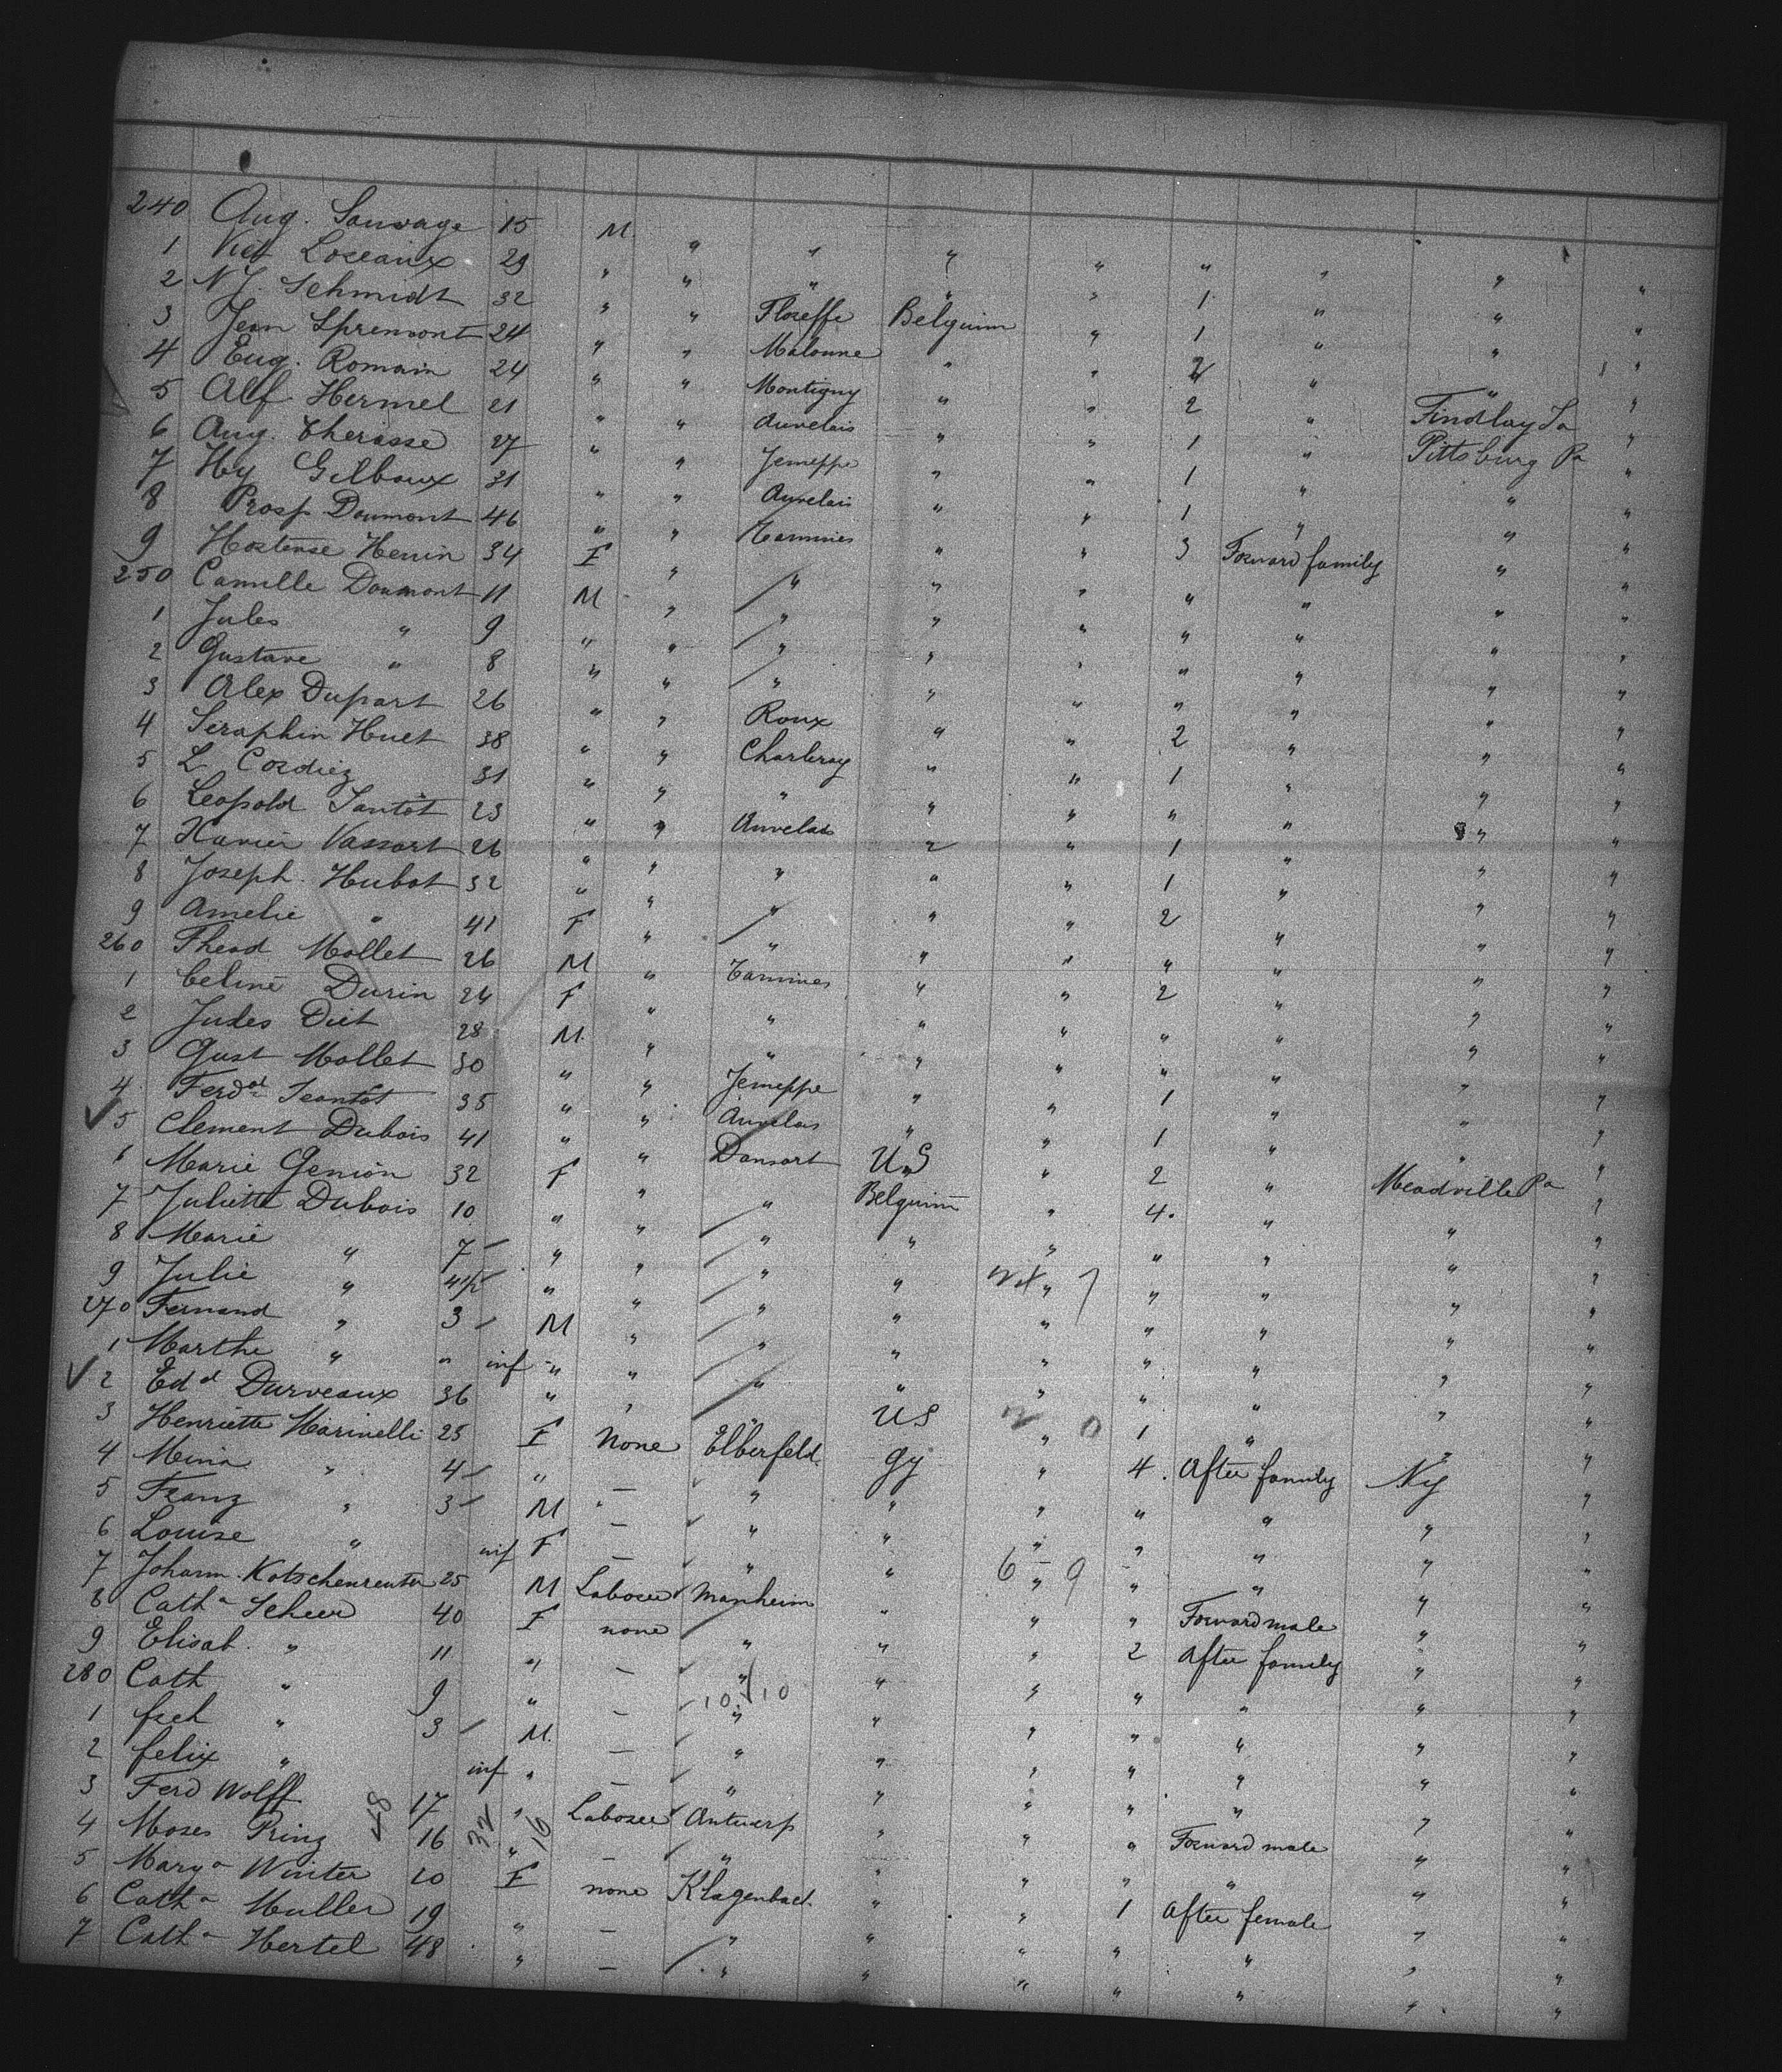 240 Aug. Sauvage 15 M. " " " " " " "
1 Vict Loceaux 29 " " " " " 1 " " "
2 N J. Schmidt 32 " " Floreffe Belguim " 1 " " "
3 Jean Spremont 24 " " Malonne " " 2 " " "
4 Eug. Romain 24 " " Montigny " " 2 " Findlay "
5 Alf. Hermel 21 " " Auvelais " " 1 " Pittsburg Pa "
6 Aug. Therasse 27 " " Jemeppe " " 1 " " "
7 Hy Gilbaux 31 " " Auvelais " " 1 " " "
8 Prosp Doumont 46 " " Tammies " " 3 Forward family " "
9 Hortense Henin 34 F " " " " " " " "
250 Camille Doumont 11 M " " " " " " " "
1 Jules " 9 " " " " " " " " "
2 Gustave " 8 " " " " " " " " "
3 Alex Dupart 26 " " Roux " " 2 " " "
4 Seraphin Huet 38 " " Charleroy " " 1 " " "
5 L Cordiez 31 " " " " " " " " "
6 Leopold Jantot 23 " " Auvelais " " 1 " " "
7 Xavier Vassart 26 " " " " " 1 " " "
8 Joseph Hubot 32 " " " " " 2 " " "
9 Amelie " 41 F " " " " " " " "
260 Theod Mollet 26 M " Tamines " " 2 " " "
1 Celine Durin 24 F " " " " " " " "
2 Jules Diet 28 M. " " " " " " " "
3 Gust Mollet 30 " " Jemeppe " " 1 " " "
4 Ferdd Jeantot 35 " " Auvelais " " 1 " " "
5 Clement Dubois 41 " " Dansart U.S " 2 " Meadville Pa "
6 Marie Genion 32 F " " Belguim " 4. " " "
7 Juliette Dubois 10 " " " " " " " " "
8 Marie " 7 " " " " " " " " "
9 Julie " " " " " " " " " "
270 Fernand " 3 M " " " " " " " "
1 Marthe " " inf " " " " " " " " "
2 Edd Durveaux 36 " " " US " 1 " " "
3 Henriette Marinelli 25 F None Elberfeld. Gy " 4. After family Ny "
4 Mina " 4 " — " " " " " " "
5 Franz " 3 M — " " " " " " "
6 Louise " inf F — " " 6 - 9 " " " " "
7 Johann Kotschenreuter 25 M Laborer Manheim " " " Forward male " "
8 Catha Scheer 40 F none " " " 2 After family " "
9 Elisab. " 11 " — " " " " " " "
280 Cath " 9 " — 10 10 " " " " " " "
1 fred " 3 M. — " " " " " " "
2 felix " inf " — " " " " " " "
3 Ferd Wolff 17 " Laborer Antwerp " " " Forward male " "
4 Moses Prinz 16 " — " " " " " " "
5 Marya Winter 20 F none Klagenbach. " " 1 After female " "
6 Catha Muller 19 " — " " " " " " "
7 Catha Hertel 48 " — " " " " " " "